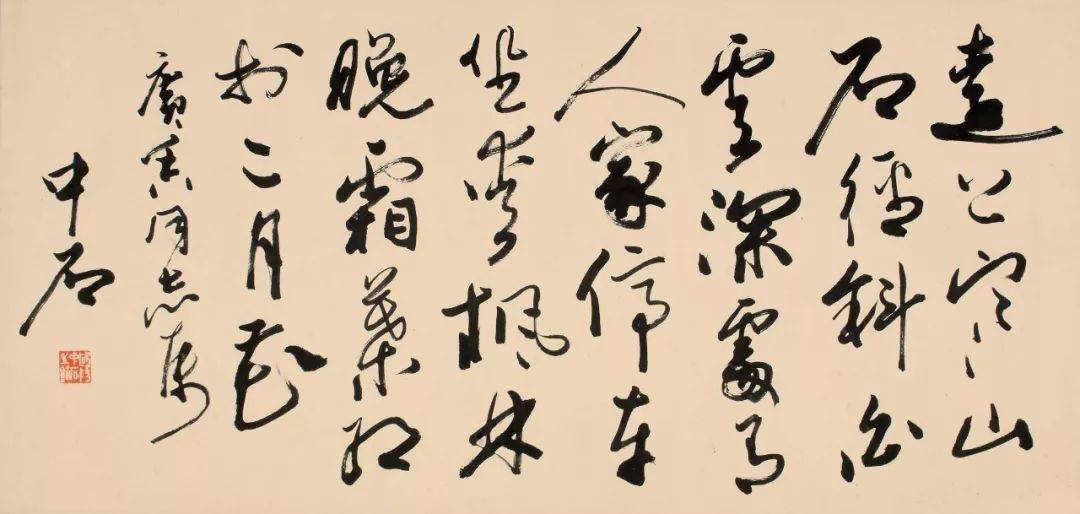 遠上寒山
石徑斜白
雲深處有
人家停車
坐愛楓林
晚霜葉紅
於二月花
廣同志
中石